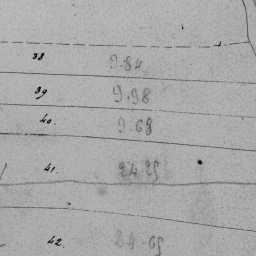 38 9.84
39 9.98
40. 9.68
41. 24.25
42. 24.65